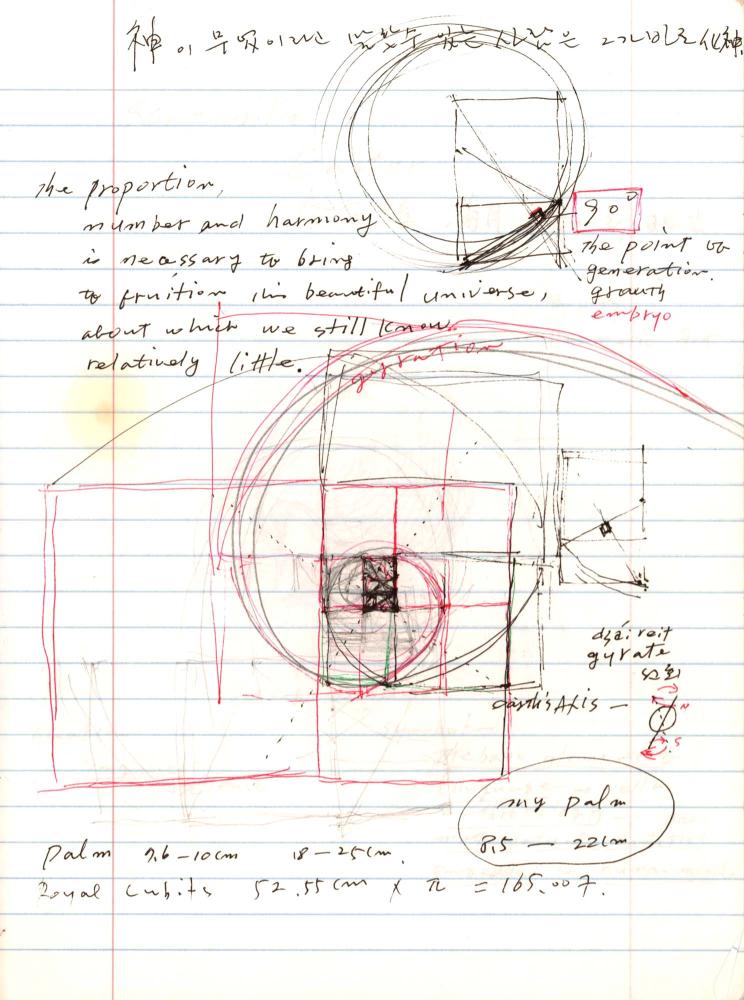 神이 무엇이라고 말할수 있는 사람은 그가 바로 神
the proportion,
number and harmony
is necessary to bring
to fruition this beautiful universe,
about which we still know
relatively little.
90°
the point of
generation.
growth
embryo
gyration
dʒáireit
gyrate
선회
earth's Axis —
N
S
my palm
8,5 — 22cm
palm 7.6 – 10cm 18 – 25cm.
Royal Cubits 52.55cm x π = 165.007.